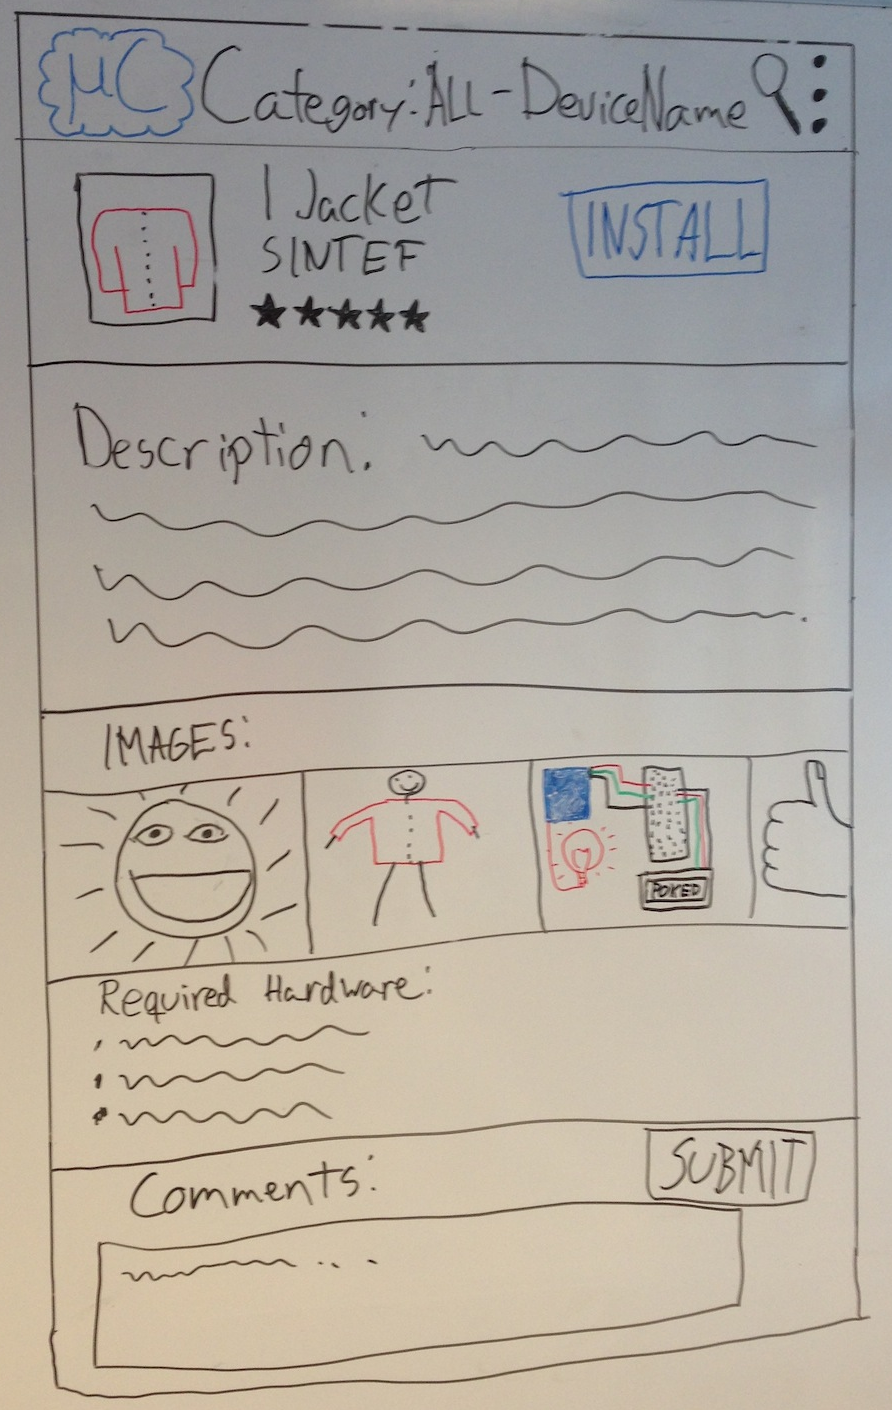 μC Category: ALL - DeviceName
1 Jacket
SINTEF
INSTALL
Description:
IMAGES:
Required Hardware:
Comments:
SUBMIT